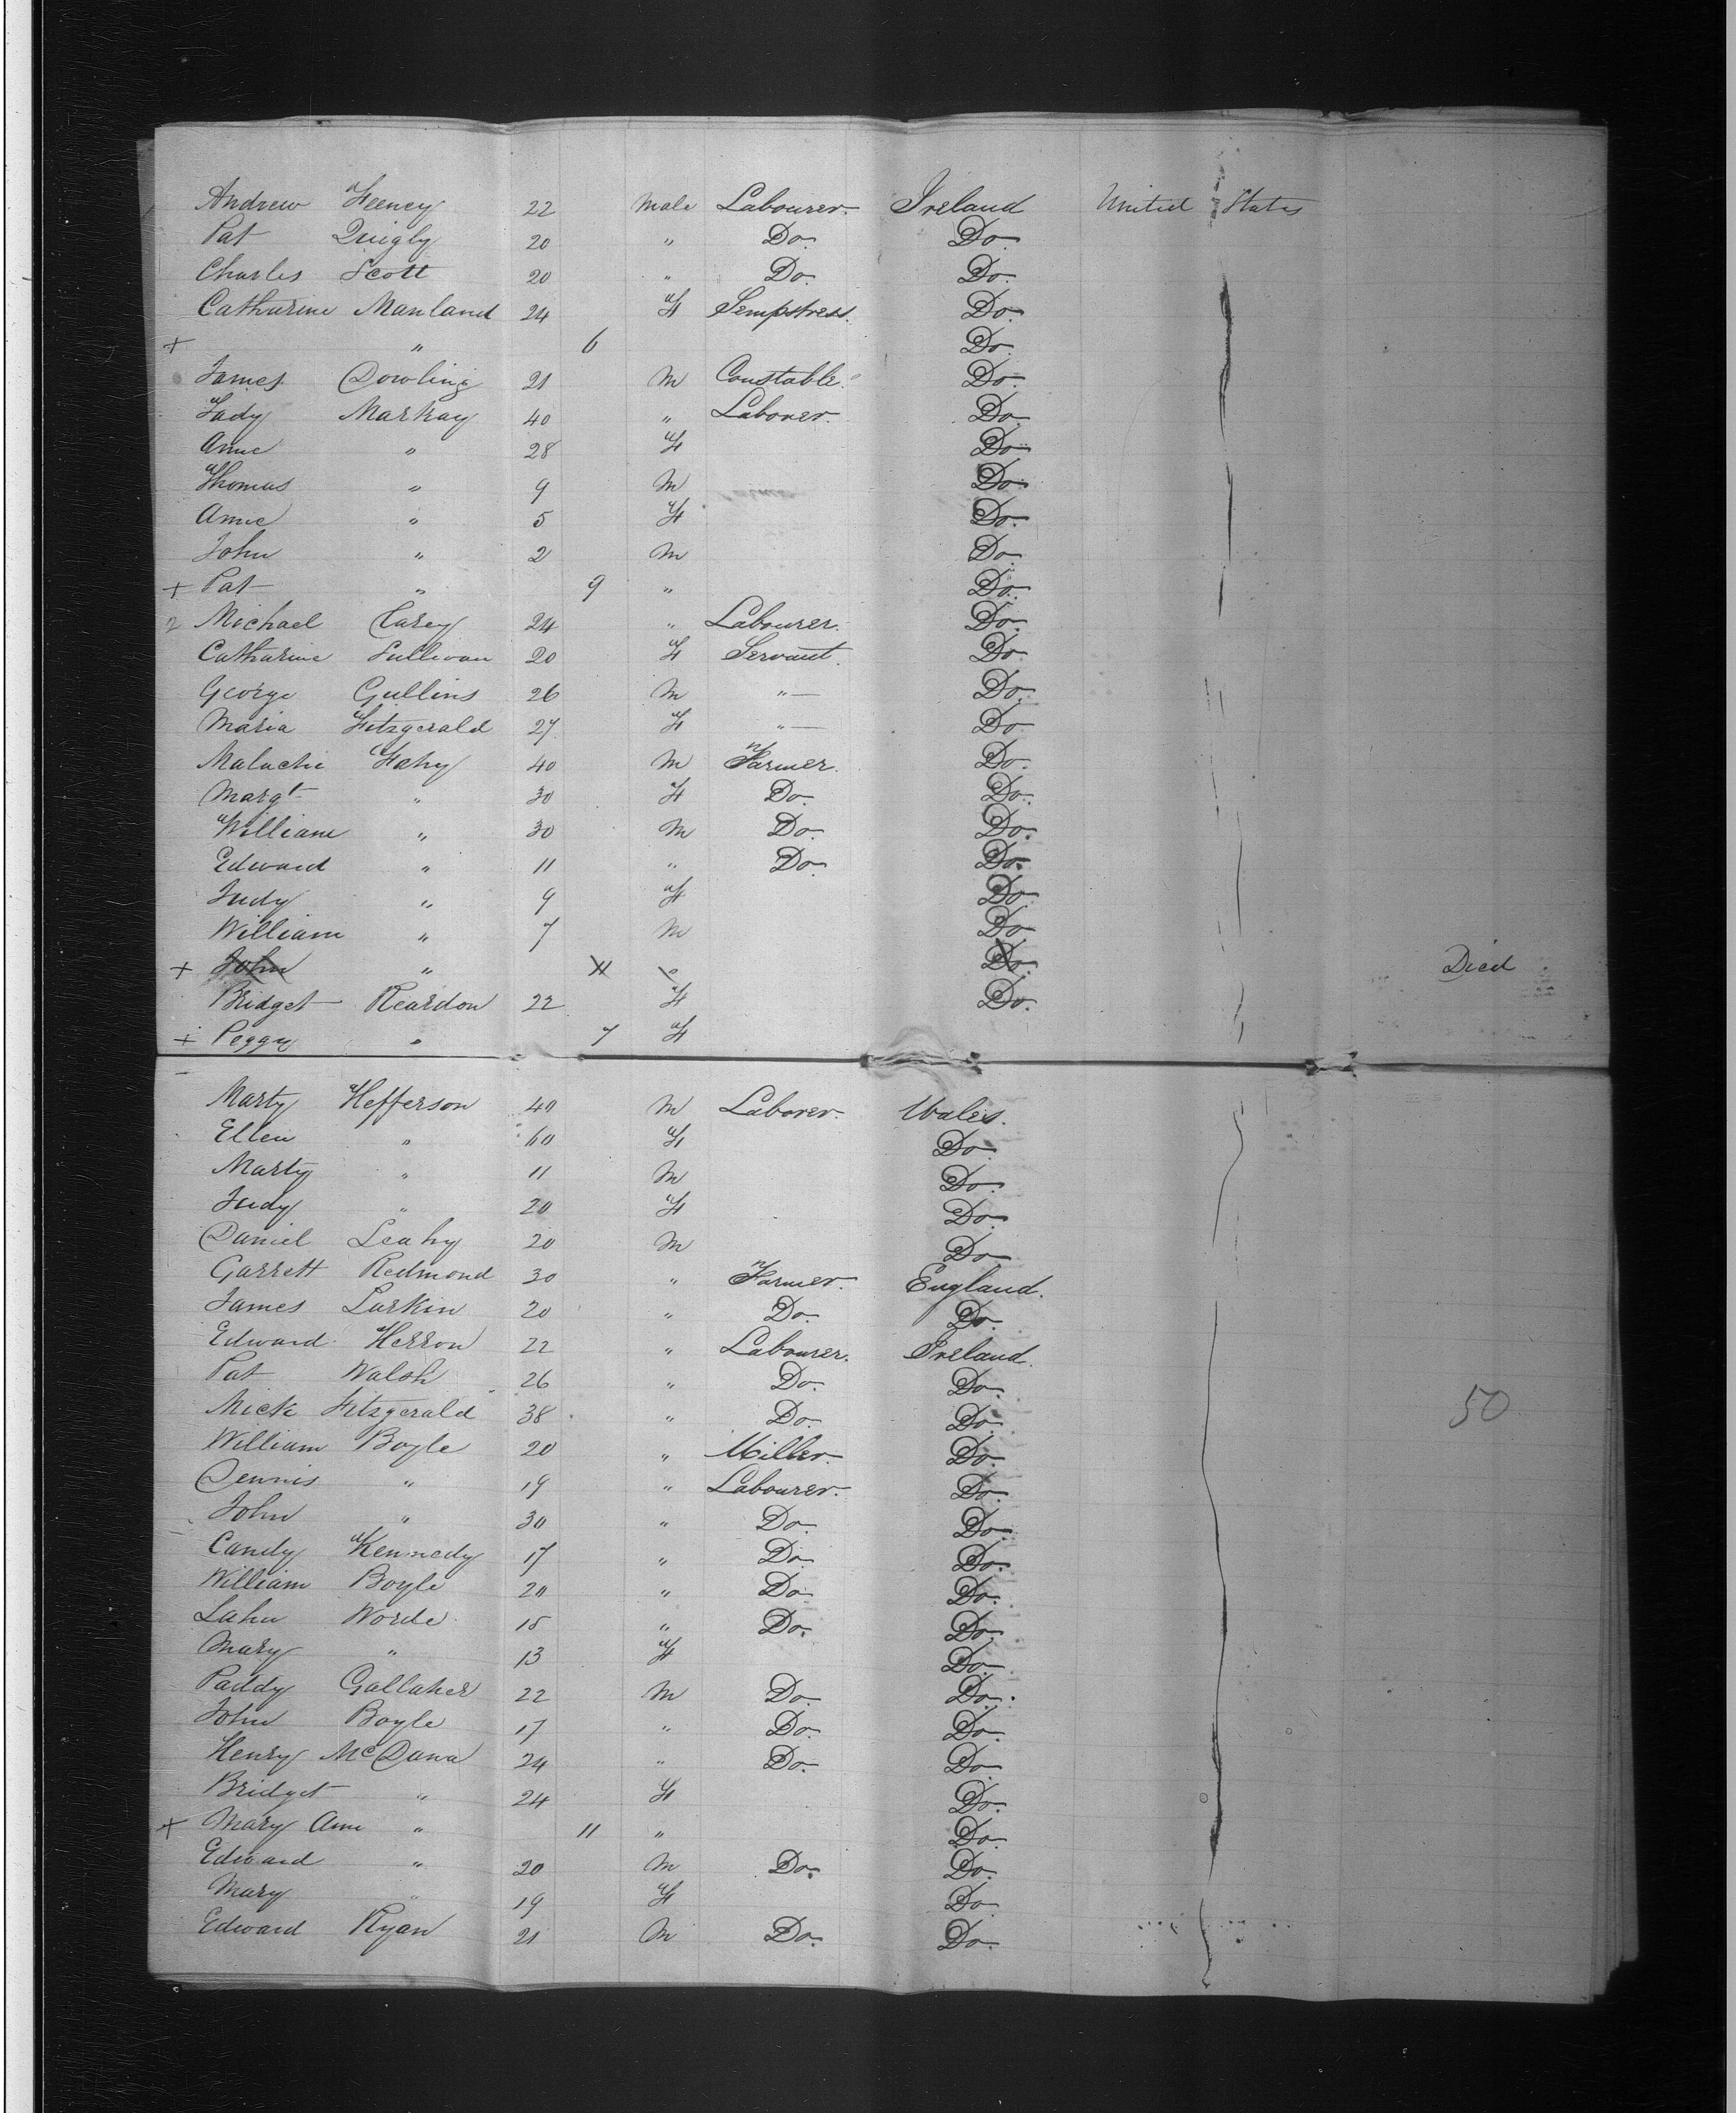 Andrew Feeney 22 Male Labourer. Ireland United States
Pat Quigly 20 " Do. Do.
Charles Scott 20 " Do. Do.
Catharine Manland 24 F Sempstress. Do.
+ " 6 Do.
James Dowling 21 M Constable. Do.
Tady Markay 40 " Laborer. Do.
Anne " 28 F Do.
Thomas " 9 M Do.
Anne " 5 F Do.
John " 2 M Do.
+ Pat " 9 " Do.
2 Michael Carey 24 " Labourer. Do.
Catharine Sullivan 20 F Servant. Do.
George Gullins 26 M "— Do.
Maria Fitzgerald 27 F "— Do.
Malachi Fahy 40 M Farmer. Do.
Margt " 30 F Do. Do.
William " 30 M Do. Do.
Edward " 11 " Do. Do.
Judy " 9 F Do.
William " 7 M Do.
+ John " 11 " Do. Died
Bridget Reardon 22 F Do.
+ Peggy " 7 F
Marty Hefferson 40 M Laborer. Wales.
Ellen " 60 F Do.
Marty " 11 M Do.
Judy " 20 F Do.
Daniel Leahy 20 M Do.
Garrett Redmond 30 " Farmer. England.
James Larkin 20 " Do. Do.
Edward Herron 22 " Labourer. Ireland.
Pat Walsh 26 " Do. Do.
Mick Fitzgerald 38 " Do. Do. 50
William Boyle 20 " Miller. Do.
Dennis " 19 " Labourer. Do.
John " 30 " Do. Do.
Candy Kennedy 17 " Do. Do.
William Boyle 20 " Do. Do.
Lahn Worde 15 " Do. Do.
Mary " 13 F Do.
Paddy Gallaher 22 M Do. Do.
John Boyle 17 " Do. Do.
Henry McDana 24 " Do. Do.
Bridget " 24 F Do.
+ Mary Ann " 11 " Do.
Edward " 20 M Do. Do.
Mary " 19 F Do.
Edward Ryan 21 M Do. Do.